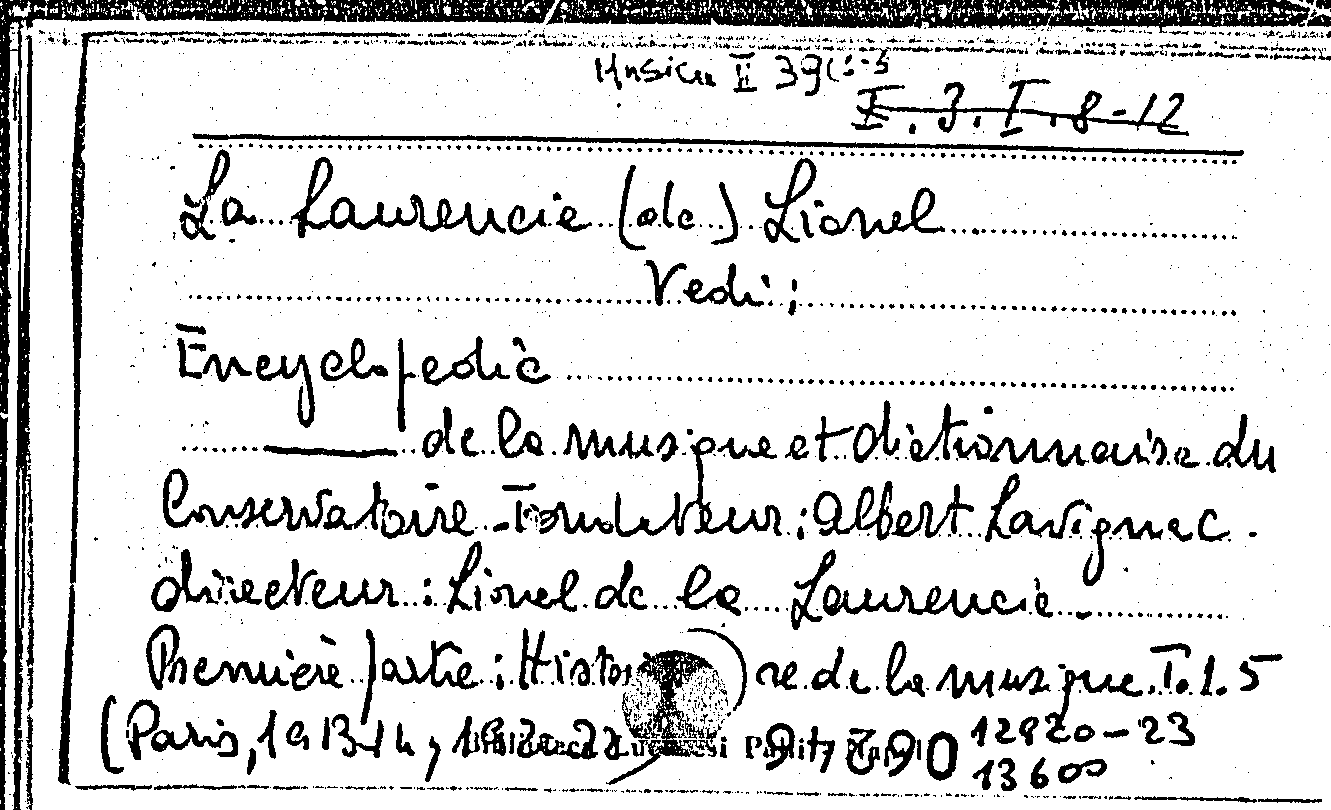 Musica II 39(1-5
I.3.I.8-12
La Laurencie (de) Lionel
Vedi:
Encyclopedie
de la musique et dictionnaire du
Conservatoire - Fondateur: Albert Lavignac.
directeur: Lionel de la Laurencie -
Première partie: Histoire de la musique. T. 1.5
(Paris, 1913-14, 1922
12920-23
13600